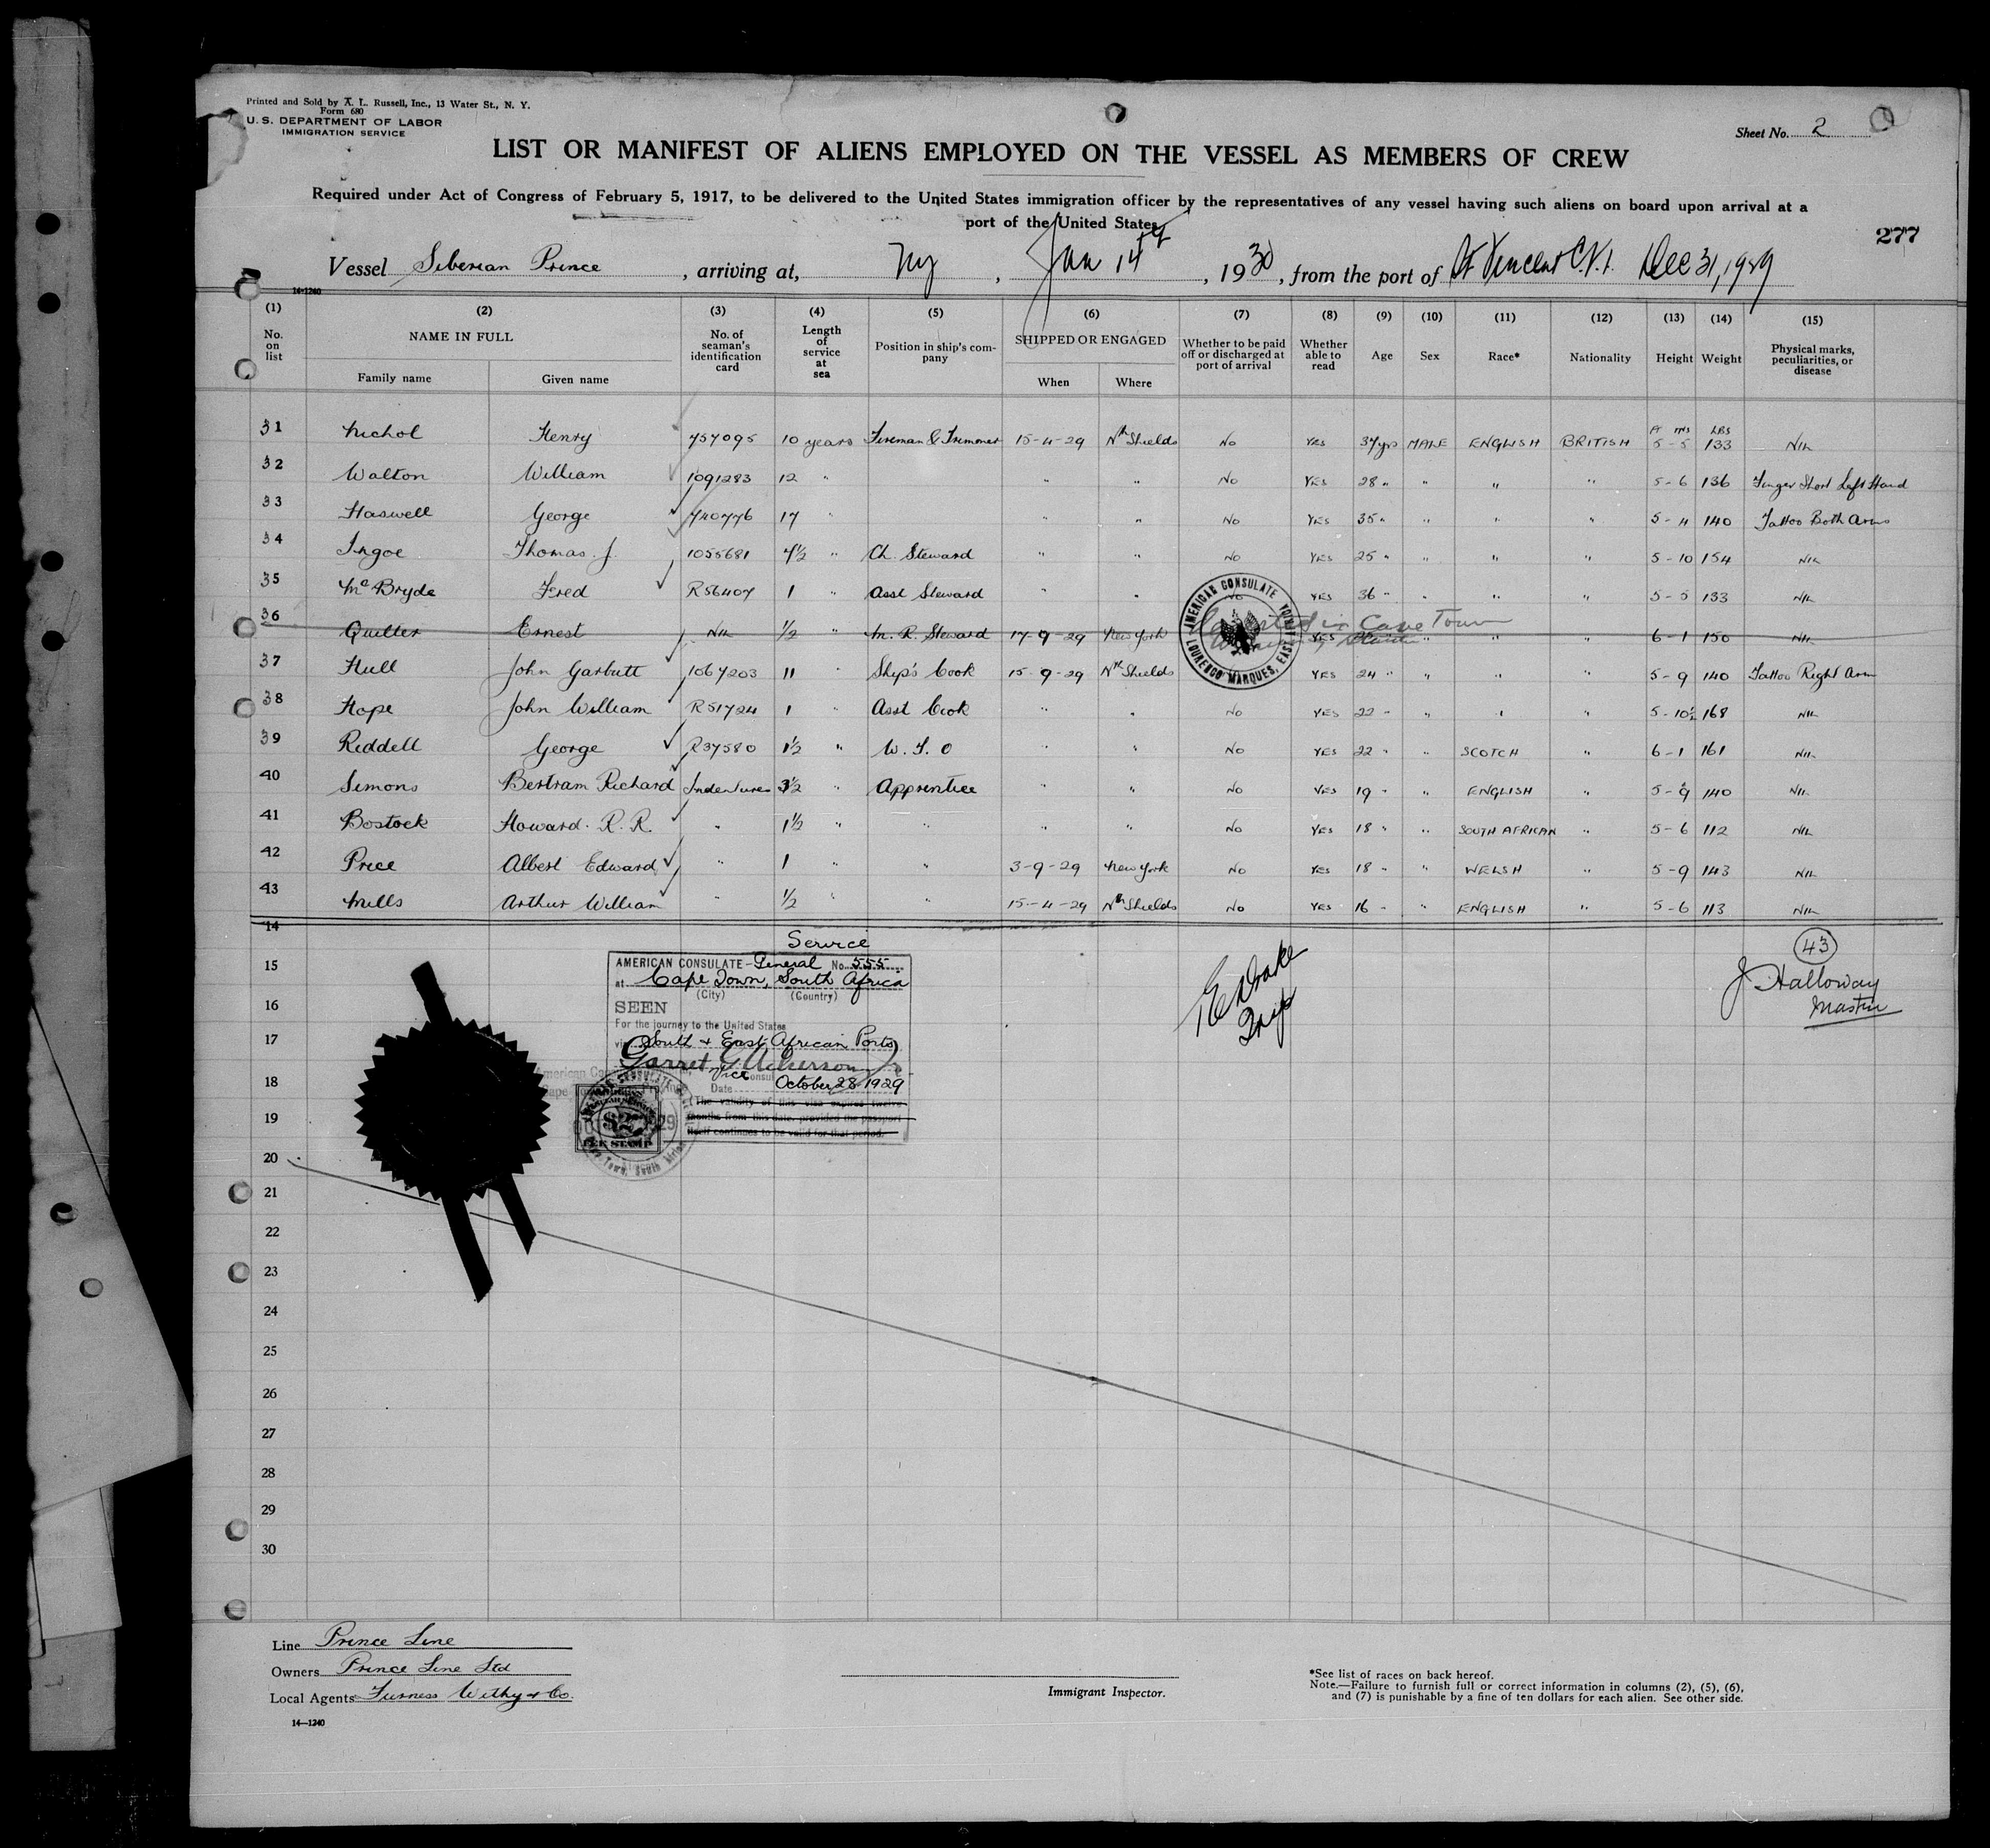 Printed and Sold by A. L. Russell, Inc., 13 Water St., N. Y.
Form 680
U. S. DEPARTMENT OF LABOR
IMMIGRATION SERVICE
Sheet No. 2
LIST OR MANIFEST OF ALIENS EMPLOYED ON THE VESSEL AS MEMBERS OF CREW
Required under Act of Congress of February 5, 1917, to be delivered to the United States immigration officer by the representatives of any vessel having such aliens on board upon arrival at a
port of the United States
277
Vessel Siberian Prince, arriving at, Ny, Jan 14th, 1930, from the port of St Vincent C.V.I. Dec 31, 1929
14-1240
(1) (2) (3) (4) (5) (6) (7) (8) (9) (10) (11) (12) (13) (14) (15)
No. on list NAME IN FULL Family name Given name No. of seaman's identification card Length of service at sea Position in ship's company SHIPPED OR ENGAGED When Where Whether to be paid off or discharged at port of arrival Whether able to read Age Sex Race* Nationality Height Weight Physical marks, peculiarities, or disease
FT INS LBS
31 Nichol Henry 757095 10 years Fireman & Trimmer 15-4-29 Nth Shields No YES 37yrs MALE ENGLISH BRITISH 5-5 133 NIL
32 Walton William 1091283 12 " " " No YES 28 " " " " 5-6 136 Finger Short Left Hand
33 Haswell George 740776 17 " " " No YES 35 " " " " 5-4 140 Tattoo Both Arms
34 Ingoe Thomas. J. 1055681 7½ " Ch. Steward " " No YES 25 " " " " 5-10 154 NIL
35 McBryde Fred R56407 1 " Asst Steward " " No YES 36 " " " " 5-5 133 NIL
36 Quilter Ernest NIL ½ " M. R. Steward 17-9-29 New York in Cape Town YES " " " 6-1 150 NIL
37 Hull John Garbutt 1067203 11 " Ship's Cook 15-9-29 Nth Shields YES 24 " " " " 5-9 140 Tattoo Right Arm
38 Hope John William R51724 1 " Asst Cook " " No YES 22 " " " " 5-10½ 168 NIL
39 Riddell George R37580 1½ " W. T. O " " No YES 22 " " SCOTCH " 6-1 161 NIL
40 Simons Bertram Richard Indentures 3½ " Apprentice " " No YES 19 " " ENGLISH " 5-9 140 NIL
41 Bostock Howard. R. R. " 1½ " " " " No YES 18 " " SOUTH AFRICAN " 5-6 112 NIL
42 Price Albert Edward " 1 " " 3-9-29 New York No YES 18 " " WELSH " 5-9 143 NIL
43 Mills Arthur William " ½ " " 15-4-29 Nth Shields No YES 16 " " ENGLISH " 5-6 113 NIL
AMERICAN CONSULATE
LOURENCO MARQUES, EAST
14
15
16
17
18
19
20
21
22
23
24
25
26
27
28
29
30
Service
AMERICAN CONSULATE-General No. 555
at Cape Town, South Africa
(City) (Country)
SEEN
For the journey to the United States
via South & East African Ports
Garret G Ackerson
Vice Consul
Date October 28 1929
(The validity of this visa expires twelve
months from this date, provided the passport
itself continues to be valid for that period.
$2
FEE STAMP
E Drake
43
J Halloway
Master
Line Prince Line
Owners Prince Line Ltd
Local Agents Furness Withy & Co.
14—1240
Immigrant Inspector.
*See list of races on back hereof.
Note.—Failure to furnish full or correct information in columns (2), (5), (6),
and (7) is punishable by a fine of ten dollars for each alien. See other side.